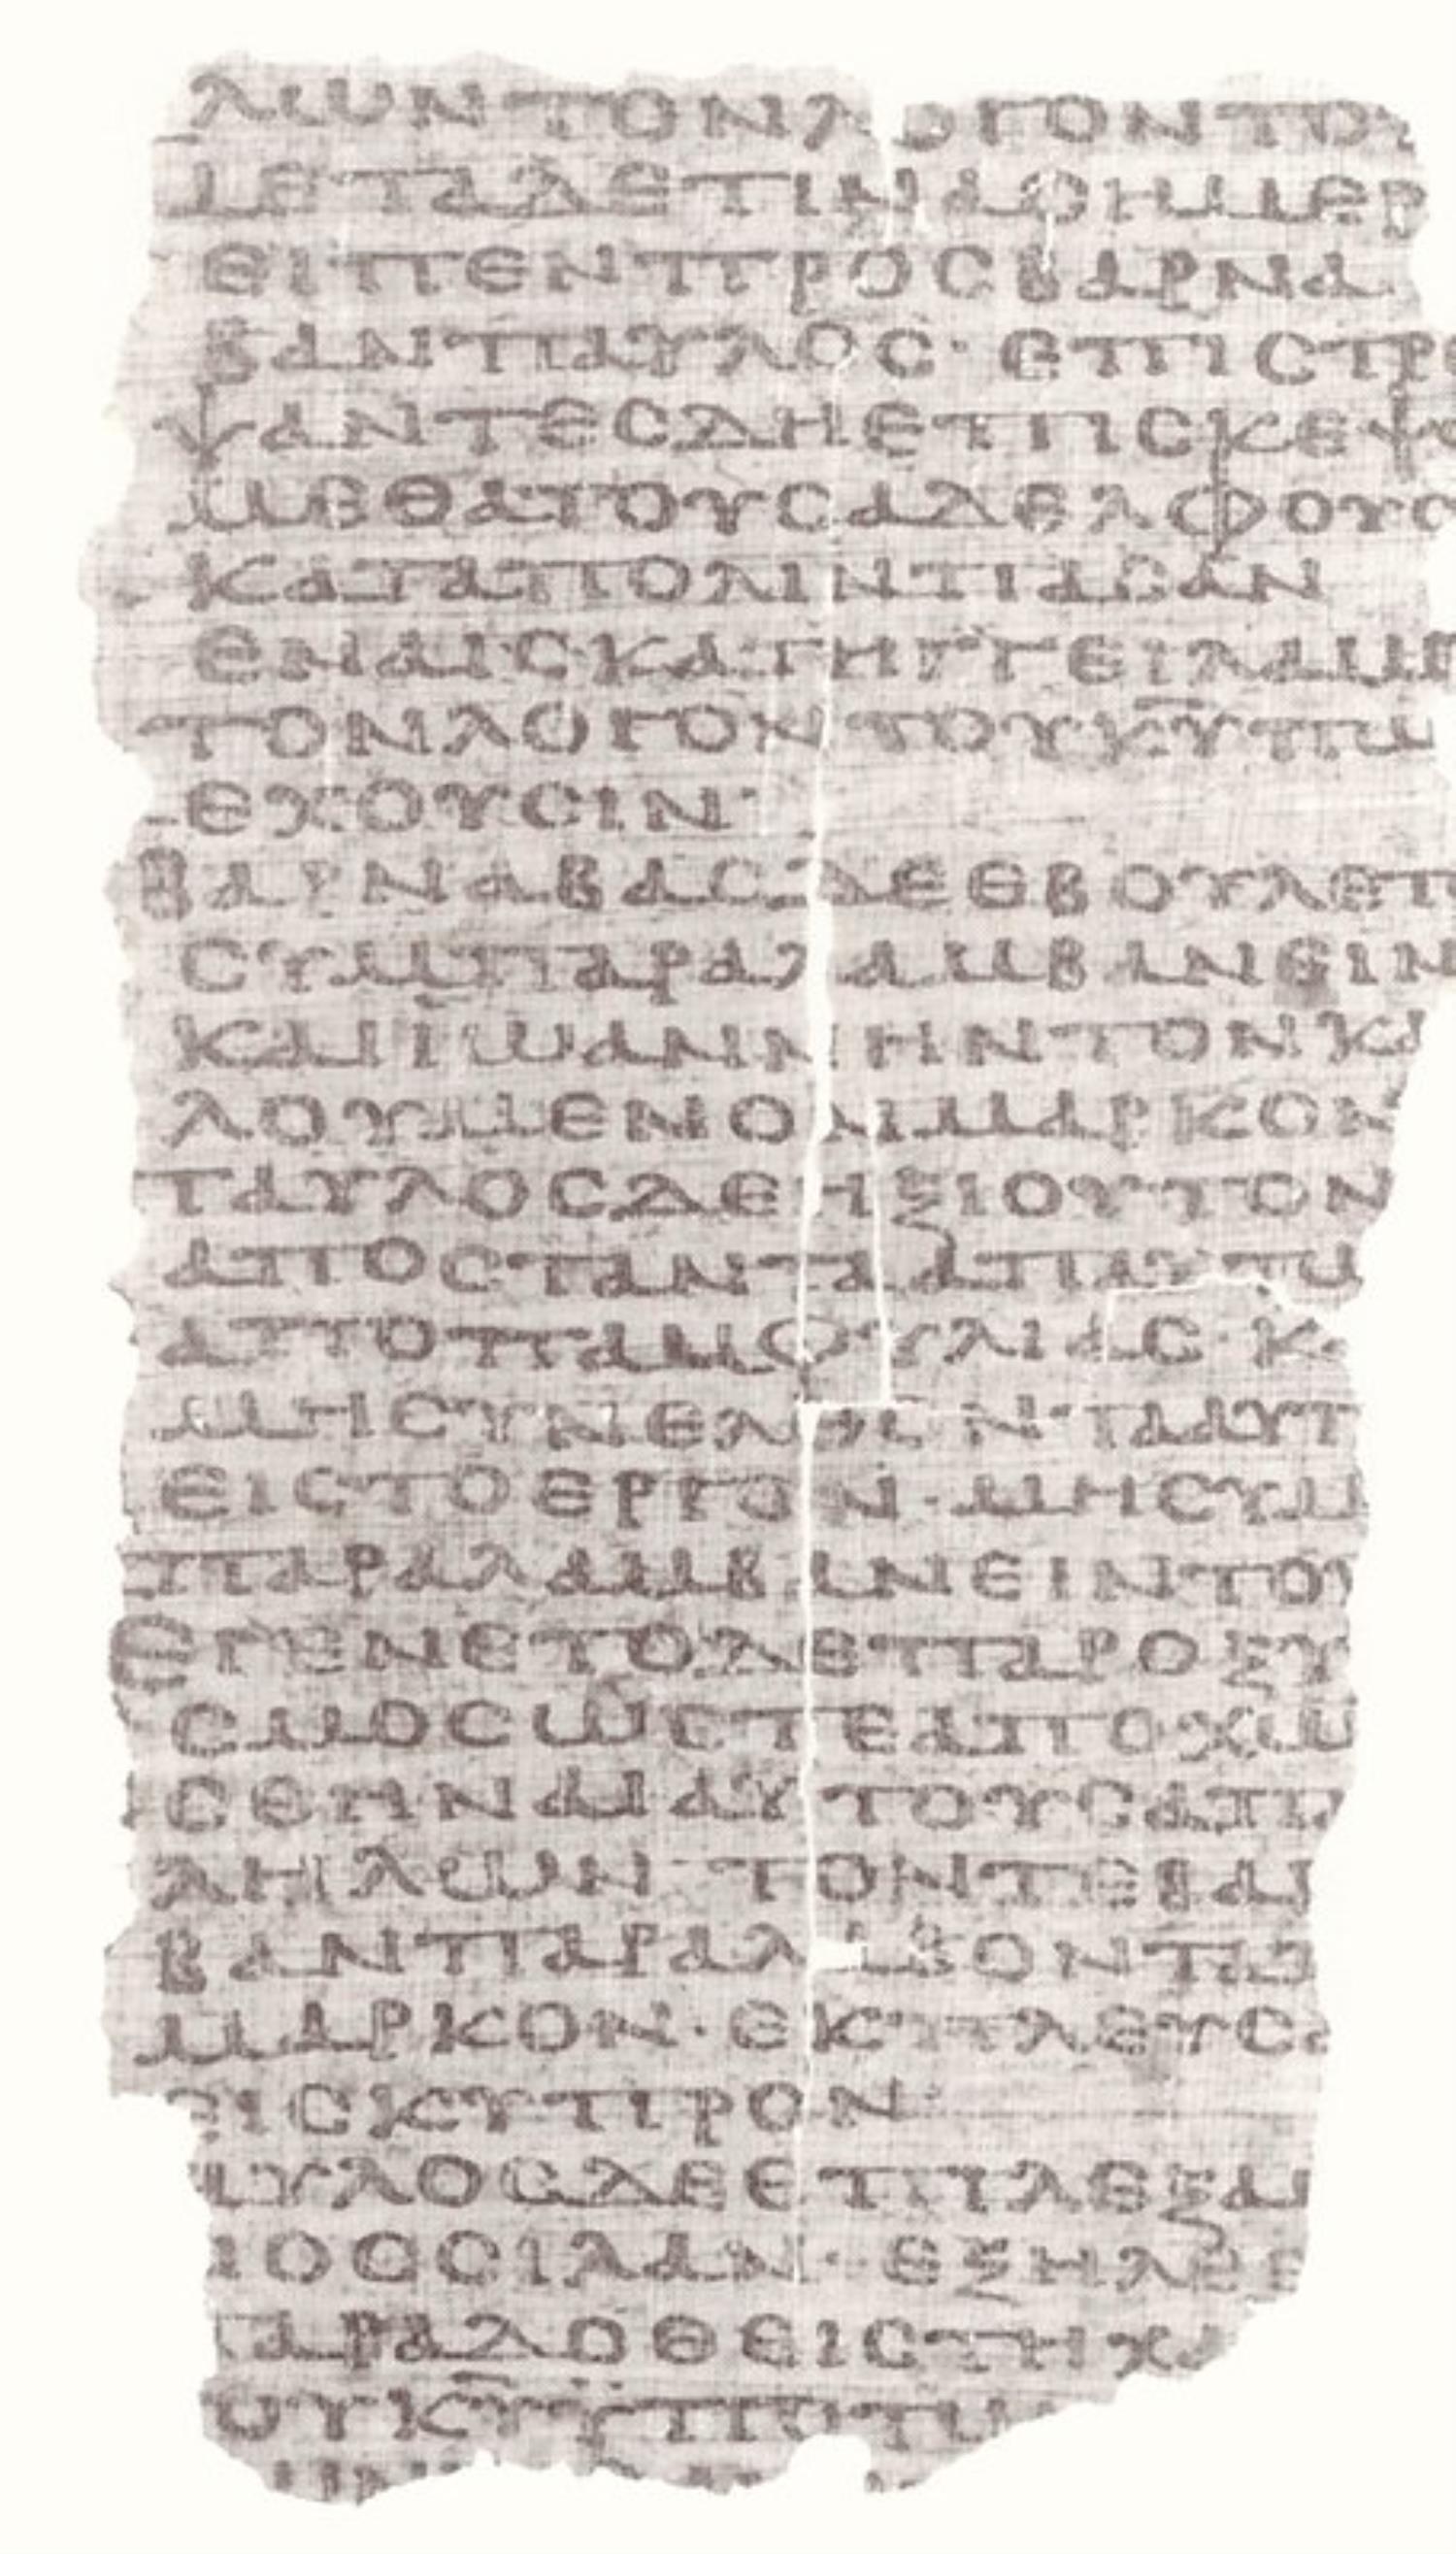 ΛΩΝ ΤΟΝ ΛΟΓΟΝ ΤΟΥ
ΜΕΤΑΔΕΤΙΝΑΣΗΜΕΡ
ΕΙΠΕΝΠΡΟΣΒΑΡΝΑ
ΒΑΝΠΑΥΛΟΣ· ΕΠΙΣΤΡΕ
ΨΑΝΤΕΣΔΗΕΠΙΣΚΕΨΩ
ΜΕΘΑΤΟΥΣΑΔΕΛΦΟΥΣ
ΚΑΤΑΠΟΛΙΝΠΑΣΑΝ
ΕΝΑΙΣΚΑΤΗΓΓΕΙΛΑΜΕ
ΤΟΝΛΟΓΟΝΤΟΥΚ̅Υ̅ΠΩ
ΕΧΟΥΣΙΝ·
ΒΑΡΝΑΒΑΣΔΕΕΒΟΥΛΕΤ
ΣΥΜΠΑΡΑΛΑΜΒΑΝΕΙΝ
ΚΑΙΪΩΑΝΝΗΝΤΟΝΚΑ
ΛΟΥΜΕΝΟΝΜΑΡΚΟΝ
ΠΑΥΛΟΣΔΕΗΞΙΟΥΤΟΝ
ΑΠΟΣΤΑΝΤΑΑΠΑΥΤΩ
ΑΠΟΠΑΜΦΥΛΙΑΣ· Κ
ΜΗΣΥΝΕΛΘΟΝΤΑΑΥΤ
ΕΙΣΤΟΕΡΓΟΝ·ΜΗΣΥΜ
ΠΑΡΑΛΑΜΒΑΝΕΙΝΤΟΥ
ΕΓΕΝΕΤΟΔΕΠΑΡΟΞΥ
ΣΜΟΣΩΣΤΕΑΠΟΧΩ
ΣΘΗΝΑΙΑΥΤΟΥΣΑΠ
ΑΗΛΩΝ· ΤΟΝΤΕΒΑΡ
ΒΑΝΠΑΡΑΛΑΒΟΝΤΑ
ΜΑΡΚΟΝ·ΕΚΠΛΕΥΣ
ΕΙΣΚΥΠΡΟΝ·
ΑΥΛΟΣΔΕΕΠΙΛΕΞΑ
ΝΟΣΣΙΛΑΝ· ΕΞΗΛΘΕ
ΠΑΡΑΔΟΘΕΙΣΤΗΧΑ
ΟΥΚ̅Υ̅ΫΠΟΤΩ